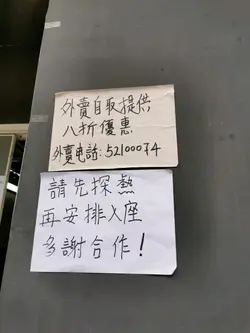 外賣自取提供
八折優惠
外賣电話:52100074
請先探熱
再安排入座
多謝合作!